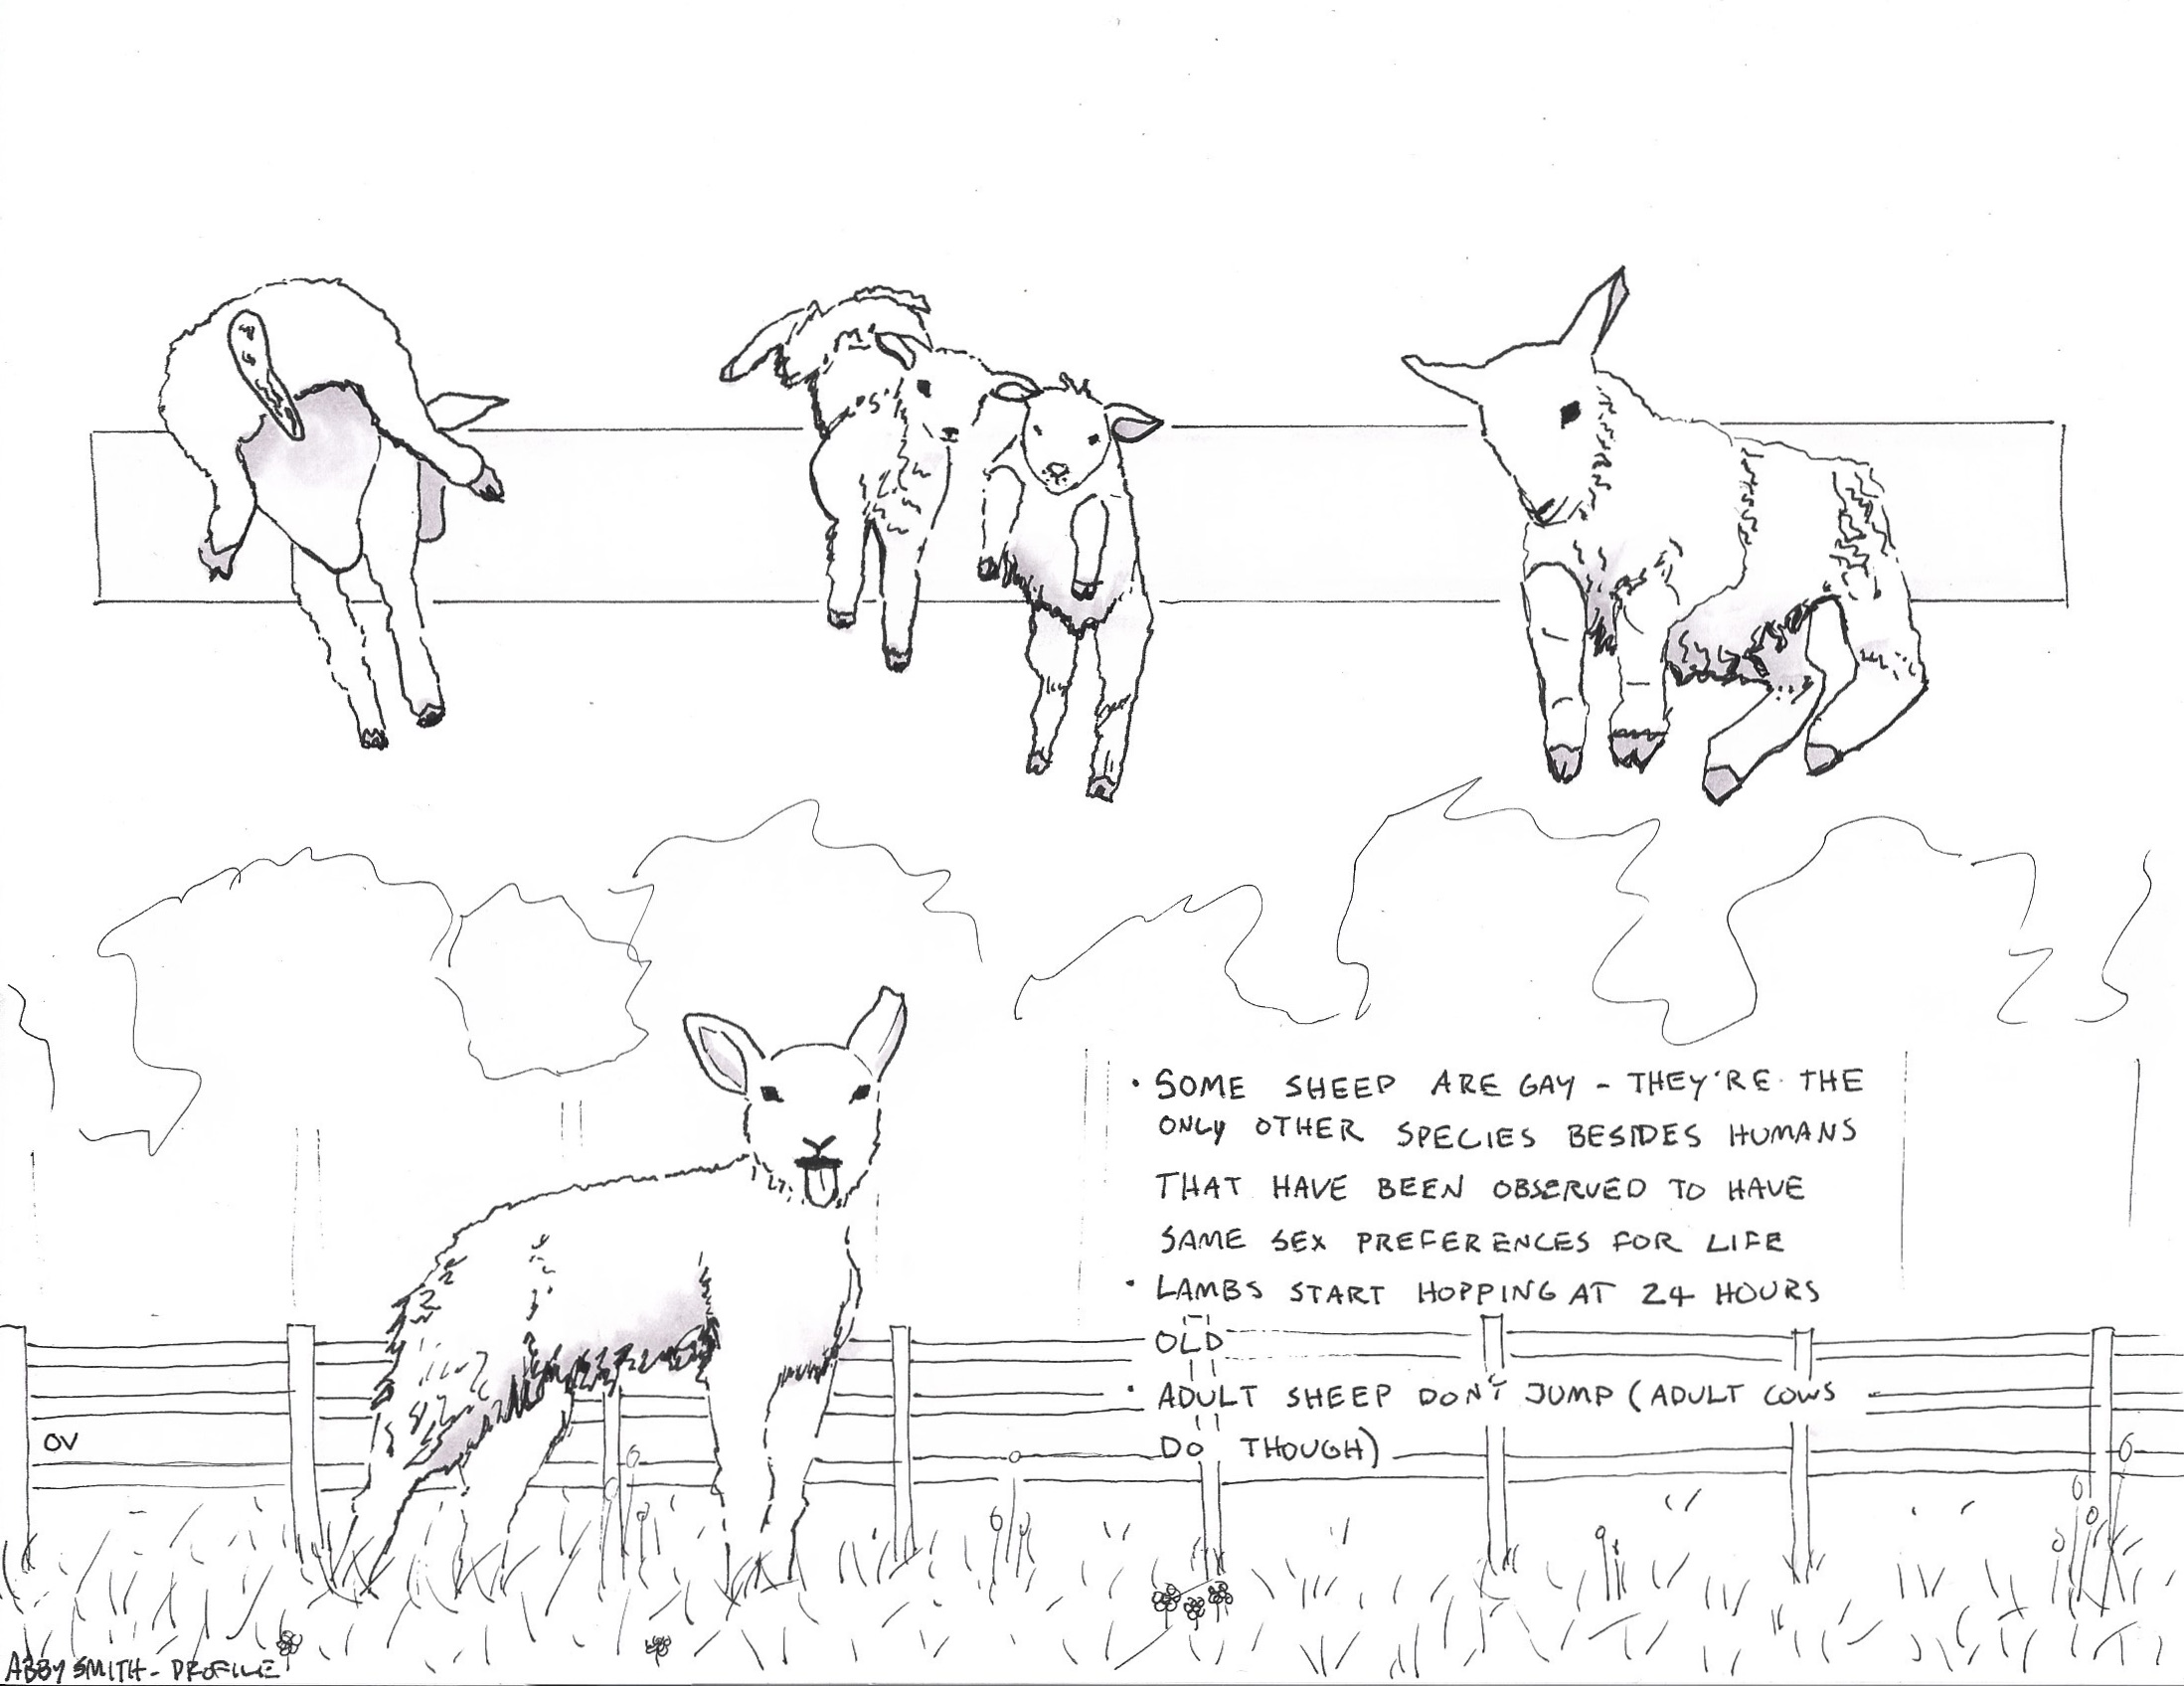 • SOME SHEEP ARE GAY - THEY'RE THE
ONLY OTHER SPECIES BESIDES HUMANS
THAT HAVE BEEN OBSERVED TO HAVE
SAME SEX PREFERENCES FOR LIFE
• LAMBS START HOPPING AT 24 HOURS
OLD
• ADULT SHEEP DON'T JUMP (ADULT COWS
DO THOUGH)
OV
ABBY SMITH - PROFILE